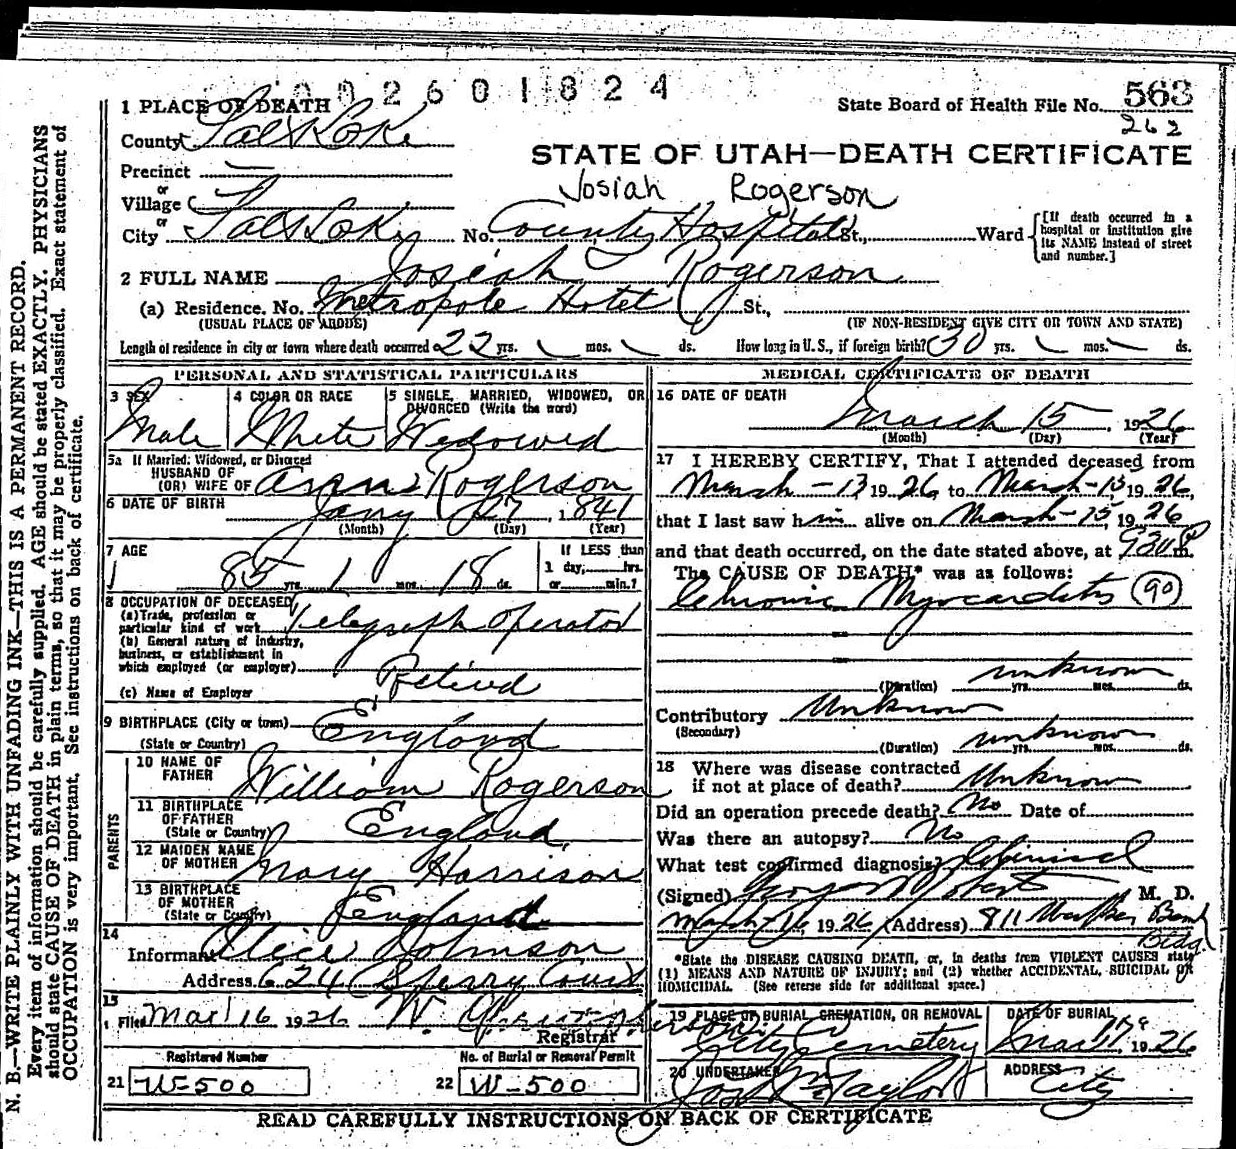 002601824
1 PLACE OF DEATH
State Board of Health File No. 563
262
County Salt Lake
STATE OF UTAH—DEATH CERTIFICATE
Precinct
or
Village
Josiah Rogerson
or
City Salt Lake No. County Hospital St., Ward
[If death occurred in a hospital or institution give its NAME instead of street and number.]
2 FULL NAME Josiah Rogerson
(a) Residence. No. Metropole Hotel St.,
(USUAL PLACE OF ABODE) (IF NON-RESIDENT GIVE CITY OR TOWN AND STATE)
Length of residence in city or town where death occurred 22 yrs. mos. ds. How long in U.S., if foreign birth? 30 yrs. mos. ds.
PERSONAL AND STATISTICAL PARTICULARS
3 SEX 4 COLOR OR RACE 5 SINGLE, MARRIED, WIDOWED, OR DIVORCED (Write the word)
Male White Widowed
5a If Married, Widowed, or Divorced
HUSBAND OF
(OR) WIFE OF Rogerson
6 DATE OF BIRTH Jany 27, 1841
(Month) (Day) (Year)
7 AGE If LESS than
1 day, hrs.
85 yrs. 1 mos. 18 ds. or min.?
8 OCCUPATION OF DECEASED
(a) Trade, profession or
particular kind of work Telegraph Operator
(b) General nature of industry,
business, or establishment in
which employed (or employer) Retired
(c) Name of Employer
9 BIRTHPLACE (City or town)
(State or Country) England
PARENTS
10 NAME OF
FATHER William Rogerson
11 BIRTHPLACE
OF FATHER
(State or Country) England
12 MAIDEN NAME
OF MOTHER Mary Harrison
13 BIRTHPLACE
OF MOTHER
(State or Country) England
14
Informant Alice Johnson
Address 624 Sperry Court
15
Filed Mar 16 1926 W.
Registrar
Registered Number No. of Burial or Removal Permit
21 W-500 22 W-500
MEDICAL CERTIFICATE OF DEATH
16 DATE OF DEATH
March 15 1926
(Month) (Day) (Year)
17 I HEREBY CERTIFY, That I attended deceased from
March-13 1926, to March-15, 1926,
that I last saw him alive on March-15, 1926
and that death occurred, on the date stated above, at 930 P m.
The CAUSE OF DEATH* was as follows:
Chronic Myocarditis (90)
unknown
(Duration) yrs. mos. ds.
Contributory Unknown
(Secondary)
unknown
(Duration) yrs. mos. ds.
18 Where was disease contracted
if not at place of death? Unknown
Did an operation precede death? No Date of
Was there an autopsy? No
What test confirmed diagnosis? Clinical
(Signed) M. D.
March-16, 1926 (Address) 811 Walker Bank
Bldg.
*State the DISEASE CAUSING DEATH, or, in deaths from VIOLENT CAUSES state
(1) MEANS AND NATURE OF INJURY; and (2) whether ACCIDENTAL, SUICIDAL or
HOMICIDAL. (See reverse side for additional space.)
19 PLACE OF BURIAL, CREMATION, OR REMOVAL DATE OF BURIAL
City Cemetery Mar 17th 1926
20 UNDERTAKER ADDRESS
Jos Wm Taylor City
READ CAREFULLY INSTRUCTIONS ON BACK OF CERTIFICATE
N. B.—WRITE PLAINLY WITH UNFADING INK—THIS IS A PERMANENT RECORD.
Every item of information should be carefully supplied. AGE should be stated EXACTLY. PHYSICIANS
should state CAUSE OF DEATH in plain terms, so that it may be properly classified. Exact statement of
OCCUPATION is very important. See instructions on back of certificate.